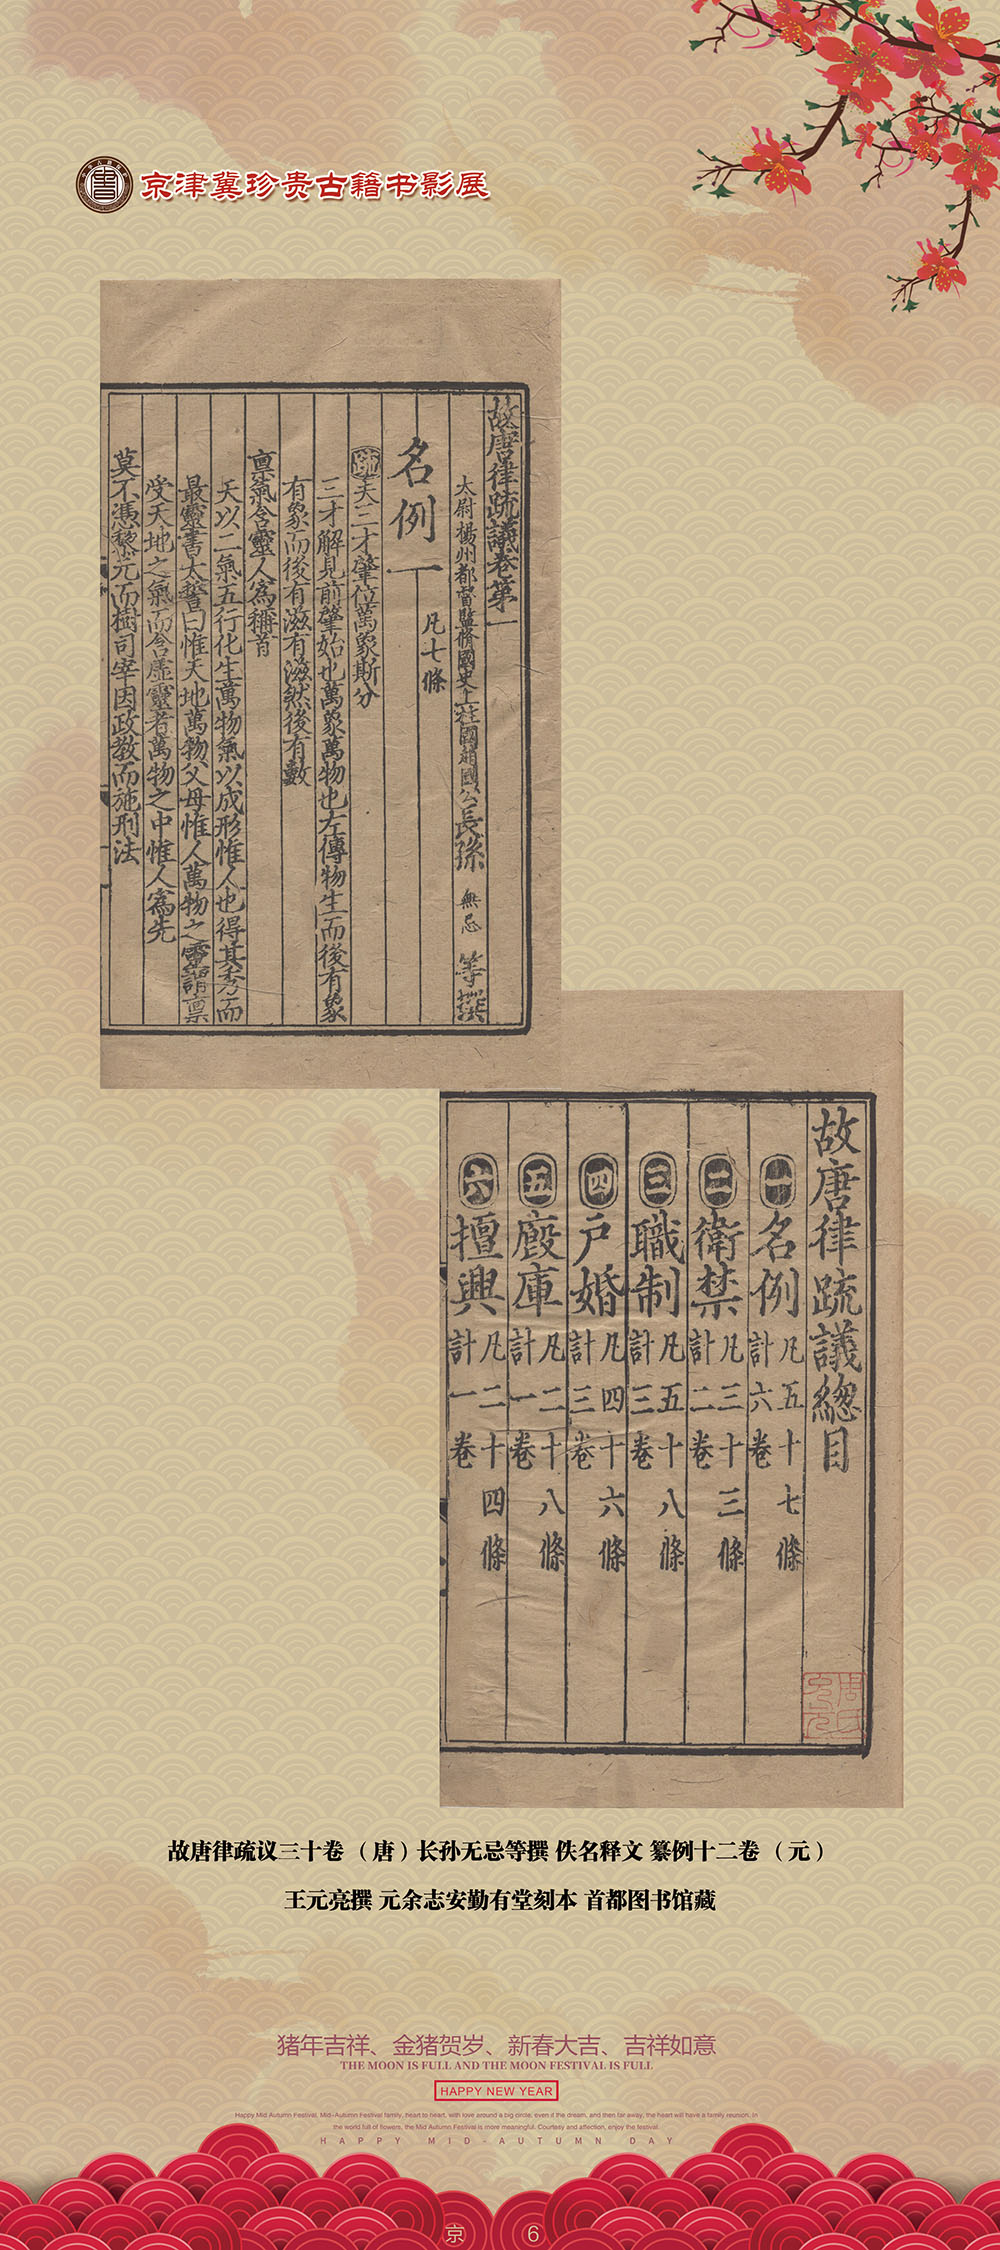 京津冀珍贵古籍书影展
故唐律疏議卷第一
太尉揚州都督監脩國史上柱國趙國公長孫無忌等撰
名例一
凡七條
疏夫三才肇位萬象斯分
三才解見前肇始也萬象萬物也左傳物生而後有象
有象而後有滋有滋然後有數
稟氣含靈人爲稱首
天以二氣五行化生萬物氣以成形惟人也得其秀而
最靈書太誓曰惟天地萬物父母惟人萬物之靈謂稟
受天地之氣而含虛靈者萬物之中惟人爲先
莫不憑黎元而樹司宰因政教而施刑法
故唐律疏議總目
一名例凡五十七條計六卷
二衛禁凡三十三條計二卷
三職制凡五十八條計三卷
四户婚凡四十六條計三卷
五廏庫凡二十八條計一卷
六擅興凡二十四條計一卷
故唐律疏议三十卷（唐）长孙无忌等撰 佚名释文 纂例十二卷（元）
王元亮撰 元余志安勤有堂刻本 首都图书馆藏
猪年吉祥、金猪贺岁、新春大吉、吉祥如意
THE MOON IS FULL AND THE MOON FESTIVAL IS FULL
HAPPY NEW YEAR
Happy Mid Autumn Festival, Mid-Autumn Festival family, heart to heart, with love around a big circle, even if the dream, and then far away, the heart will have a family reunion. In
the world full of flowers, the Mid Autumn Festival is more meaningful. Courtesy and affection, enjoy the festival.
HAPPY MID-AUTUMN DAY
京 6